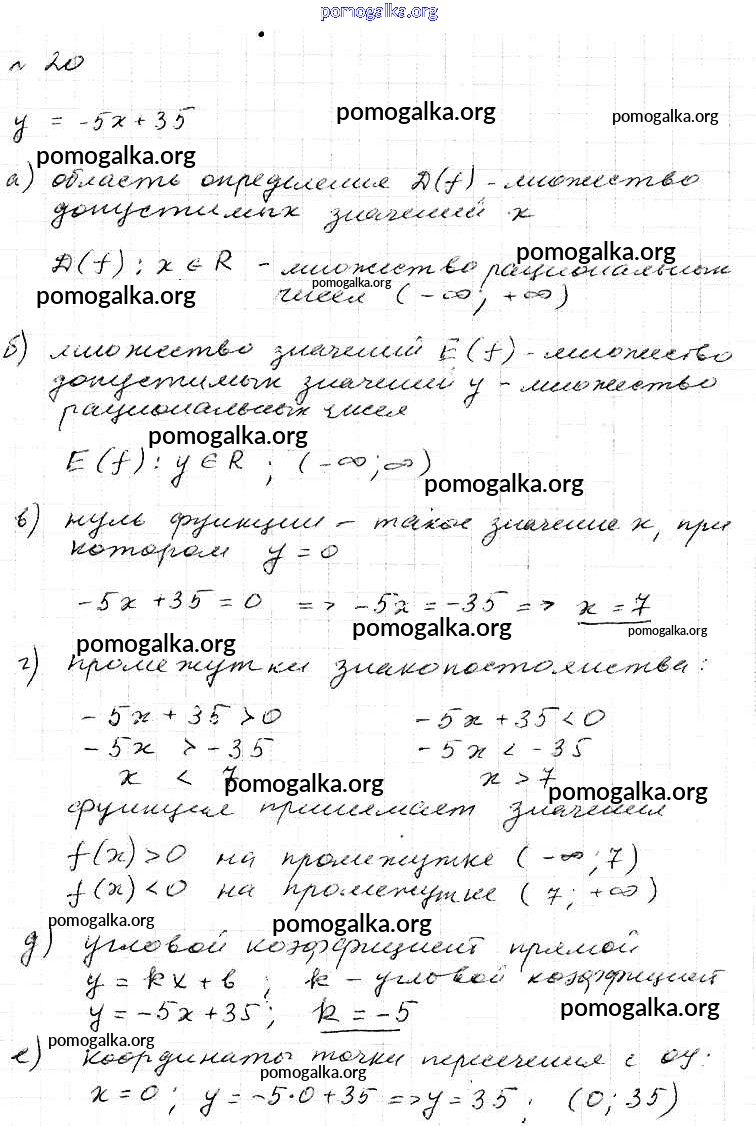 pomogalka.org
№ 20
pomogalka.org pomogalka.org
y = -5x + 35
pomogalka.org
а) область определения D(f) - множество
допустимых значений x
pomogalka.org
D(f): x ∈ R - множество рациональных
pomogalka.org pomogalka.org
чисел (-∞; +∞)
б) множество значений E(f) - множество
допустимых значений y - множество
рациональных чисел
pomogalka.org
E(f): y ∈ R ; (-∞; ∞)
pomogalka.org
в) нуль функции - такое значение x, при
котором y = 0
-5x + 35 = 0 => -5x = -35 => x = 7
pomogalka.org pomogalka.org pomogalka.org
г) промежутки знакопостоянства:
-5x + 35 > 0 -5x + 35 < 0
-5x > -35 -5x < -35
x < 7 x > 7
pomogalka.org pomogalka.org
функция принимает значения
f(x) > 0 на промежутке (-∞; 7)
f(x) < 0 на промежутке (7; +∞)
pomogalka.org pomogalka.org
д) угловой коэффициент прямой
y = kx + b ; k - угловой коэффициент
y = -5x + 35; k = -5
pomogalka.org
pomogalka.org
е) координаты точки пересечения с oy:
pomogalka.org
x = 0; y = -5·0 + 35 => y = 35; (0; 35)